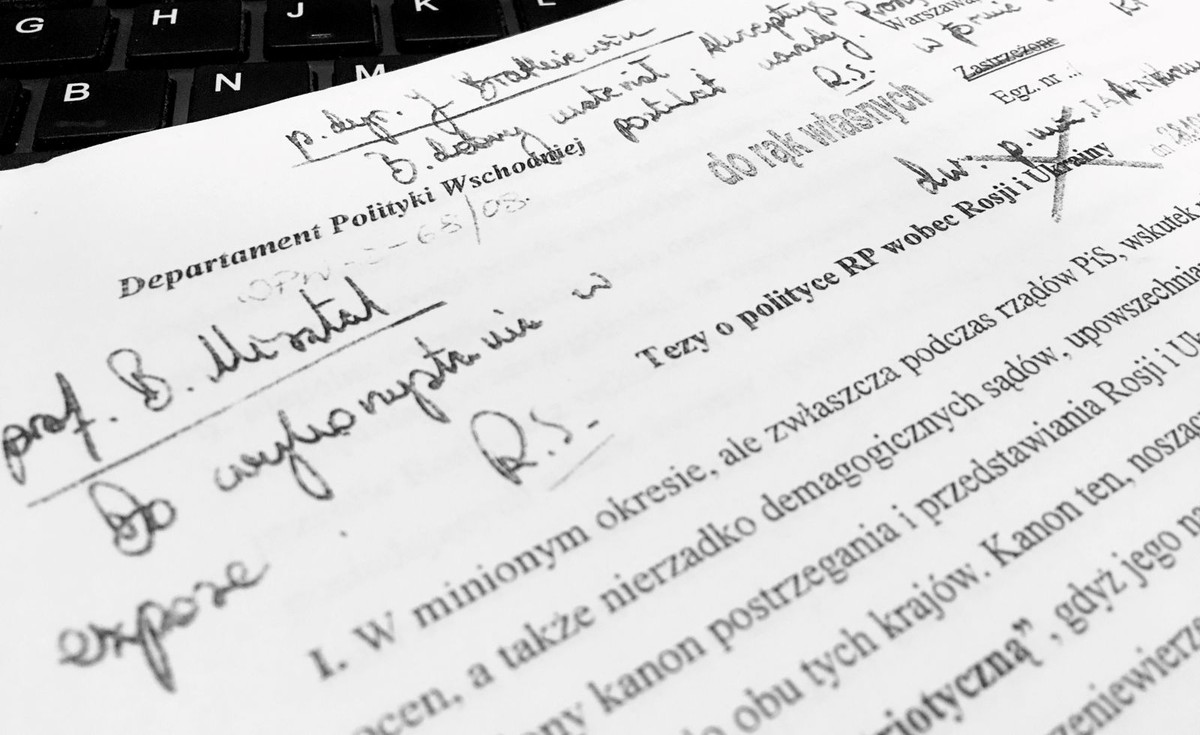 G H J K L
B N M
p. dyr. J. Bratkiewicz
B. dobry materiał. Akceptuję
postulat narady.
R.S.
Warszawa
w
Zastrzeżone
Egz. nr
do rąk własnych
Departament Polityki Wschodniej
DPW 68/08
prof. B. Misztal
Do wykorzystania w
expose
R.S.
Tezy o polityce RP wobec Rosji i Ukrainy
I. W minionym okresie, ale zwłaszcza podczas rządów PiS, wskutek
ocen, a także nierzadko demagogicznych sądów, upowszechnia
ony kanon postrzegania i przedstawiania Rosji i U
obu tych krajów. Kanon ten, nosząc
riotyczną”, gdyż jego
zeniewierze